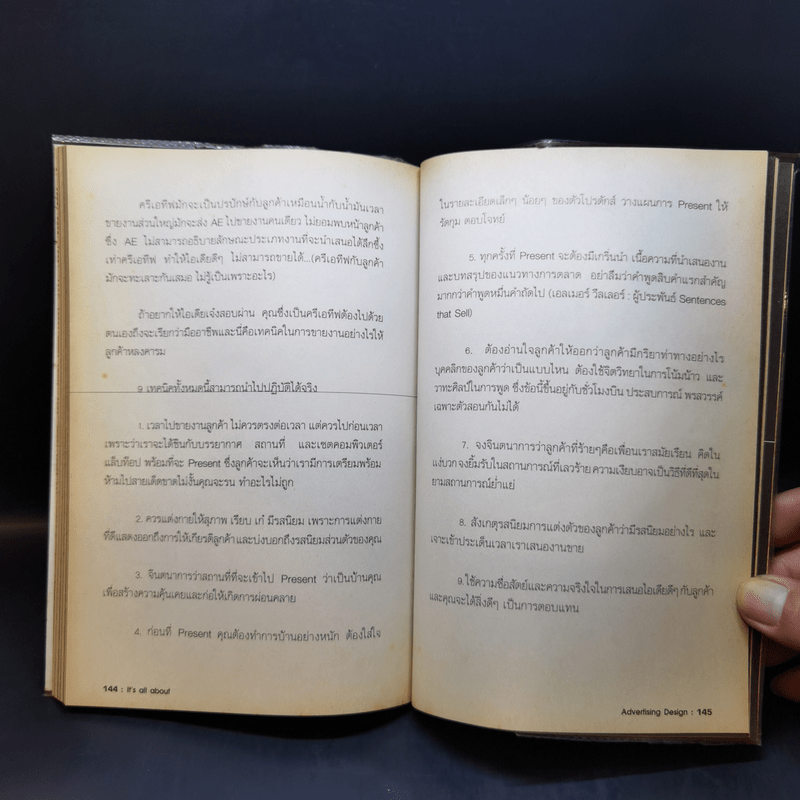 ครีเอทีฟมักจะเป็นปรปักษ์กับลูกค้าเหมือนน้ำกับน้ำมันเวลา
ขายงานส่วนใหญ่มักจะส่ง AE ไปขายงานคนเดียว ไม่ยอมพบหน้าลูกค้า
ซึ่ง AE ไม่สามารถอธิบายลักษณะประเภทงานที่จะนำเสนอได้ลึกซึ้ง
เท่าครีเอทีฟ ทำให้ไอเดียดีๆ ไม่สามารถขายได้...(ครีเอทีฟกับลูกค้า
มักจะทะเลาะกันเสมอ ไม่รู้เป็นเพราะอะไร)
ถ้าอยากให้ไอเดียเจ๋งสอบผ่าน คุณซึ่งเป็นครีเอทีฟต้องไปด้วย
ตนเองถึงจะเรียกว่ามืออาชีพและนี่คือเทคนิคในการขายงานอย่างไรให้
ลูกค้าหลงคารม
9 เทคนิคทั้งหมดนี้สามารถนำไปปฏิบัติได้จริง
1. เวลาไปขายงานลูกค้า ไม่ควรตรงต่อเวลา แต่ควรไปก่อนเวลา
เพราะว่าเราจะได้ชินกับบรรยากาศ สถานที่ และเซตคอมพิวเตอร์
แล็บท็อป พร้อมที่จะ Present ซึ่งลูกค้าจะเห็นว่าเรามีการเตรียมพร้อม
ห้ามไปสายเด็ดขาดไม่งั้นคุณจะรน ทำอะไรไม่ถูก
2. ควรแต่งกายให้สุภาพ เรียบ เก๋ มีรสนิยม เพราะการแต่งกาย
ที่ดีแสดงออกถึงการให้เกียรติลูกค้า และบ่งบอกถึงรสนิยมส่วนตัวของคุณ
3. จินตนาการว่าสถานที่ที่จะเข้าไป Present ว่าเป็นบ้านคุณ
เพื่อสร้างความคุ้นเคยและก่อให้เกิดการผ่อนคลาย
4. ก่อนที่ Present คุณต้องทำการบ้านอย่างหนัก ต้องใส่ใจ
144 : It's all about
ในรายละเอียดเล็กๆ น้อยๆ ของตัวโปรดักส์ วางแผนการ Present ให้
รัดกุม ตอบโจทย์
5. ทุกครั้งที่ Present จะต้องมีเกริ่นนำ เนื้อความที่นำเสนองาน
และบทสรุปของแนวทางการตลาด อย่าลืมว่าคำพูดสิบคำแรกสำคัญ
มากกว่าคำพูดหมื่นคำถัดไป (เอลเมอร์ วีลเลอร์ : ผู้ประพันธ์ Sentences
that Sell)
6. ต้องอ่านใจลูกค้าให้ออกว่าลูกค้ามีกริยาท่าทางอย่างไร
บุคคลิกของลูกค้าว่าเป็นแบบไหน ต้องใช้จิตวิทยาในการโน้มน้าว และ
วาทะศิลป์ในการพูด ซึ่งข้อนี้ขึ้นอยู่กับชั่วโมงบิน ประสบการณ์ พรสวรรค์
เฉพาะตัวสอนกันไม่ได้
7. จงจินตนาการว่าลูกค้าที่ร้ายๆคือเพื่อนเราสมัยเรียน คิดใน
แง่บวก จงยิ้มรับในสถานการณ์ที่เลวร้าย ความเงียบอาจเป็นวิธีที่ดีที่สุดใน
ยามสถานการณ์ย่ำแย่
8. สังเกตุรสนิยมการแต่งตัวของลูกค้าว่ามีรสนิยมอย่างไร และ
เจาะเข้าประเด็นเวลาเราเสนองานขาย
9.ใช้ความซื่อสัตย์และความจริงใจในการเสนอไอเดียดีๆ กับลูกค้า
และคุณจะได้สิ่งดีๆ เป็นการตอบแทน
Advertising Design : 145